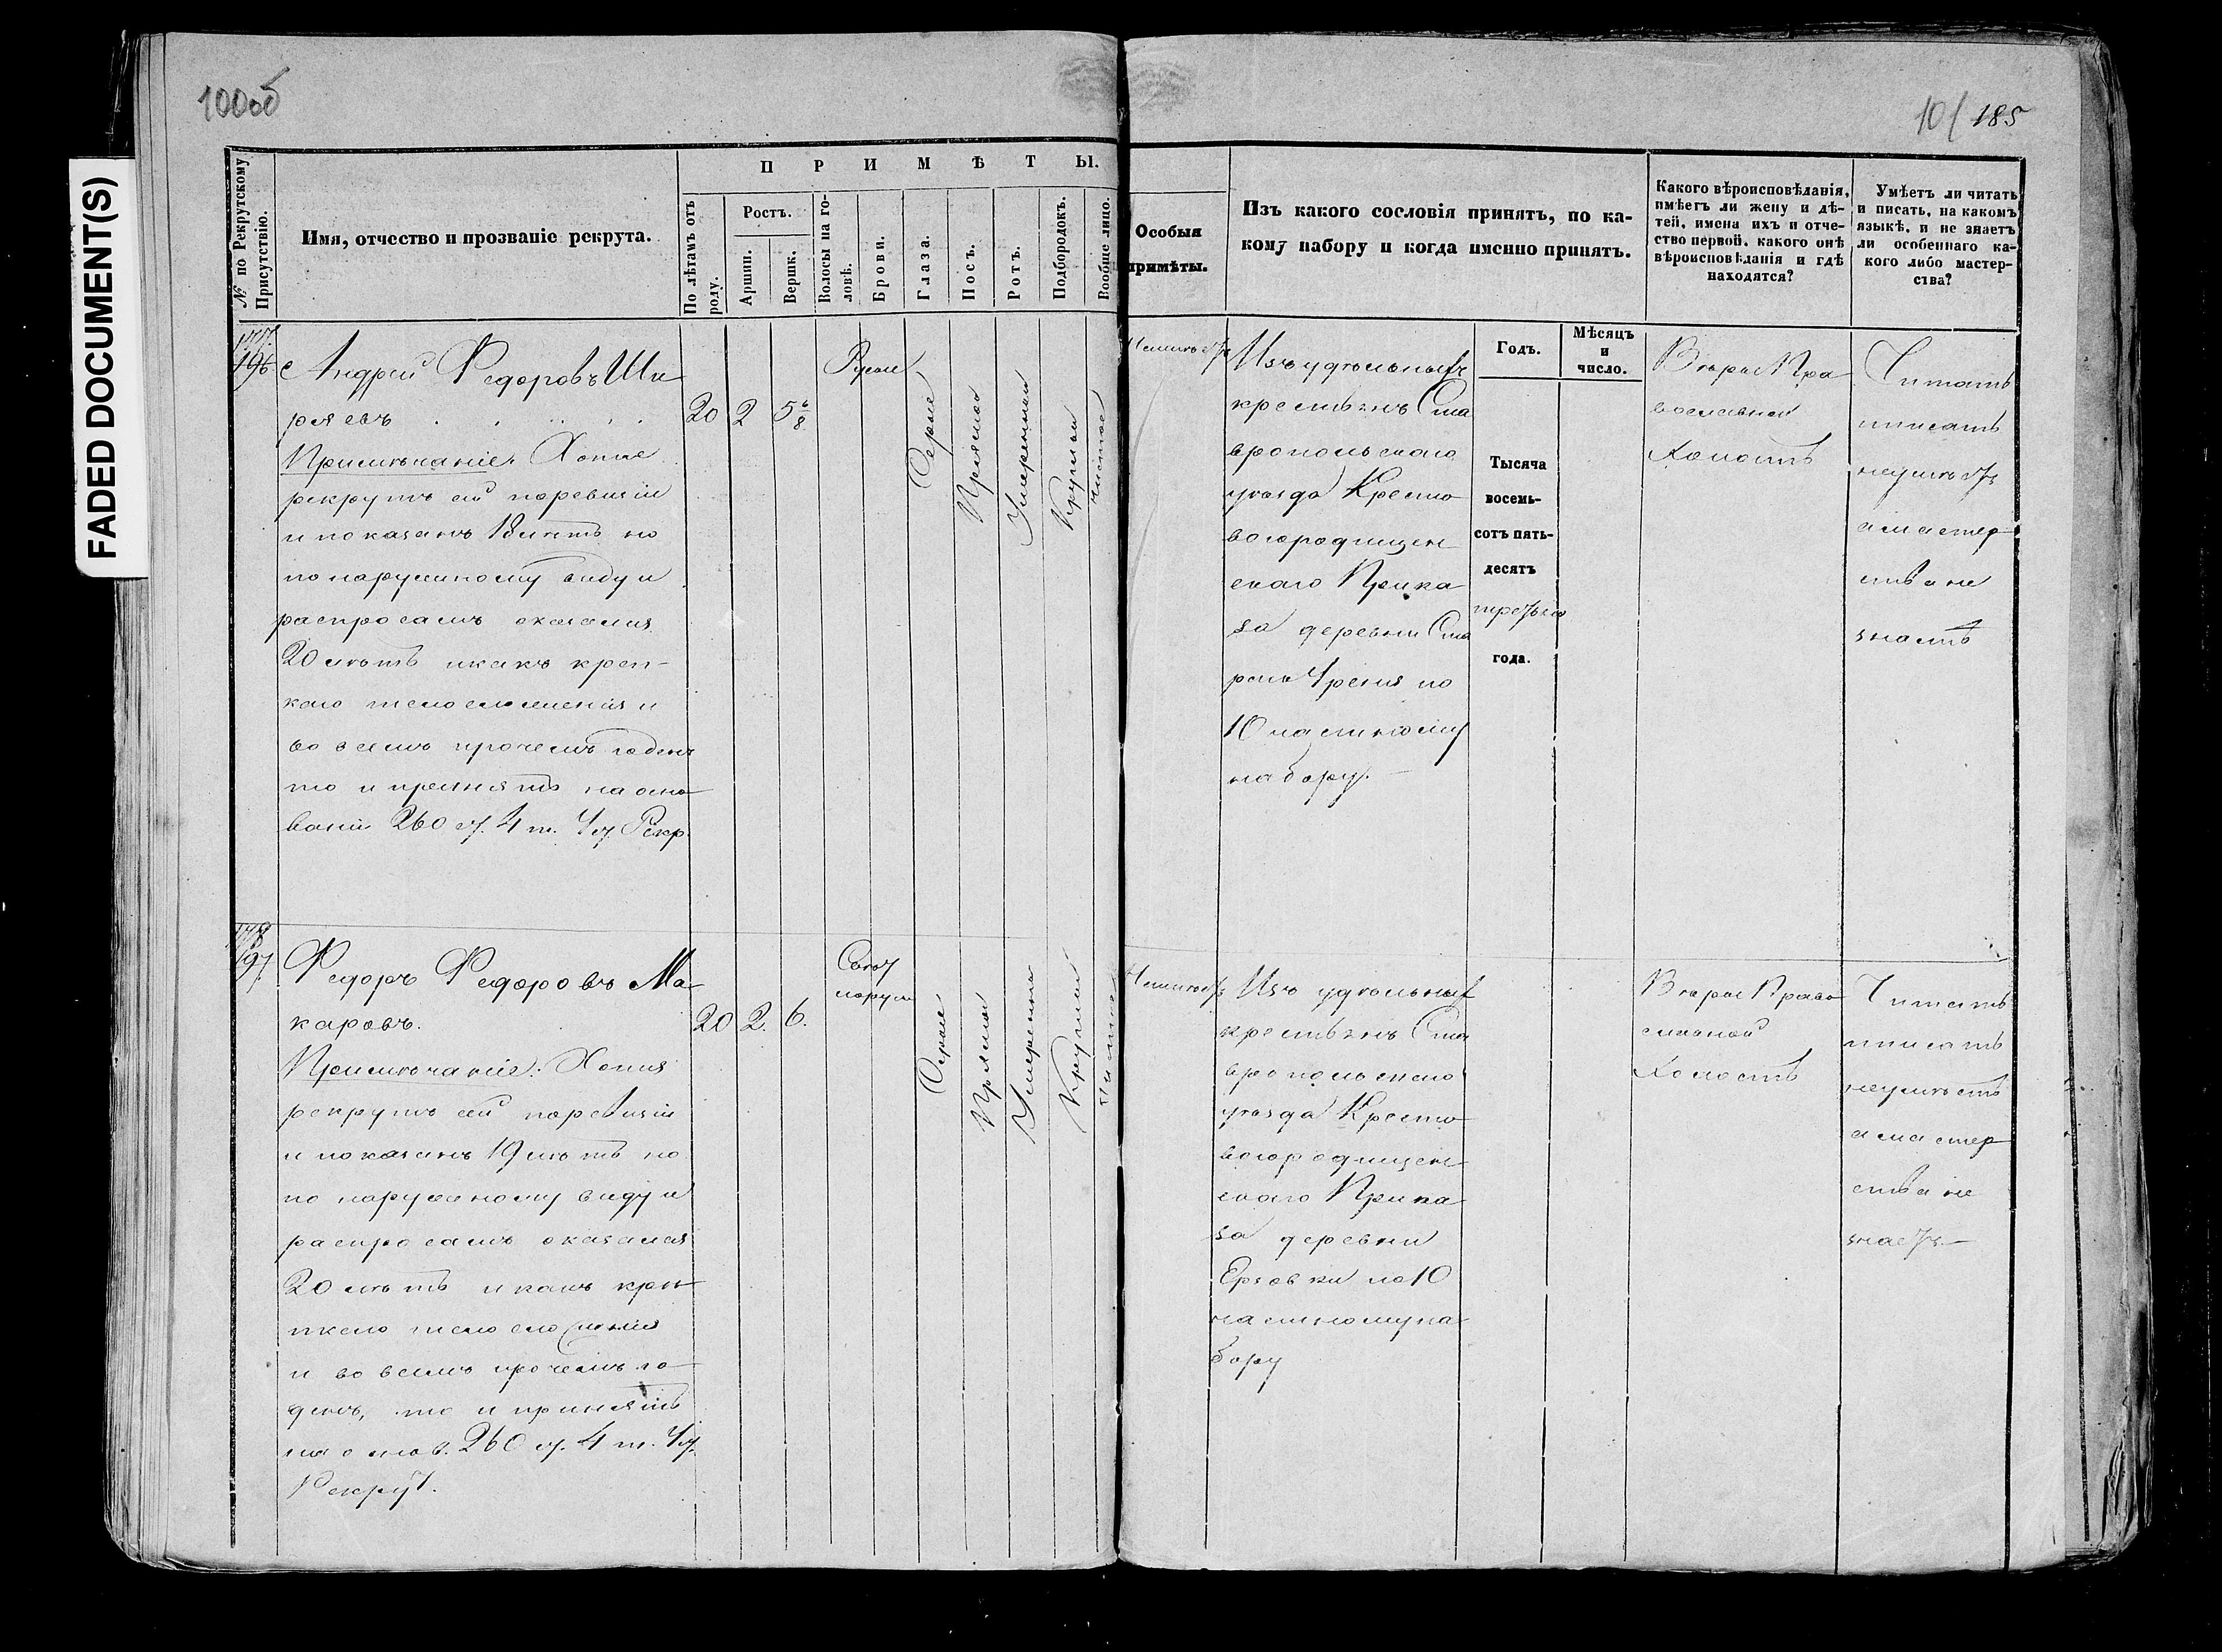 FADED DOCUMENT(S)
100об
101 185
№ по Рекрутскому Присутствію.
Имя, отчество и прозваніе рекрута.
П Р И М Ѣ Т Ы.
По лѣтамъ отъ роду.
Ростъ.
Аршин.
Вершк.
Волосы на головѣ.
Брови.
Глаза.
Носъ.
Ротъ.
Подбородокъ.
Вообще лицо.
Особыя
примѣты.
Изъ какого сословія принятъ, по ка-
кому набору и когда именно принятъ.
Годъ.
Мѣсяцъ
и
число.
Какого вѣроисповѣданія,
имѣетъ ли жену и дѣ-
тей, имена ихъ и отче-
ство первой, какого онѣ
вѣроисповѣданія и гдѣ
находятся?
Умѣетъ ли читать
и писать, на какомъ
языкѣ, и не знаетъ
ли особеннаго ка-
кого либо мастер-
ства?
196
Андрей Федоровъ Ши
ряевъ
Примѣчаніе. Хотя
рекрутъ сей поревизіи
и показанъ 18 лѣтъ но
по наружному виду и
распросамъ оказался
20 лѣтъ и какъ креп-
каго телосложенія и
во всемъ прочемъ годенъ
то и принятъ на осно
ваніи 260 ст. 4 т. Уст. Рекр.
20 2 5 6/8
Русые
Серые
Прямой
Умеренный
Круглой
Чистое
Неимѣетъ
Изъ удѣльныхъ
крестьянъ Ста
вропольскаго
уѣзда Кресто
вогородищен
скаго Прика
за деревни Ста
рой Уреня по
10 частному
набору.
Тысяча
восемь-
сотъ пять-
десятъ
третьяго
года.
Вѣры Пра
вославной
Холостъ
Читать
писать
неумѣетъ
а мастер
ства не
знаетъ
197
Федоръ Федоровъ Ма-
каровъ.
Примѣчаніе: Хотя
рекрутъ сей поревизіи
и показанъ 19 лѣтъ но
по наружному виду и
распросамъ оказался
20 лѣтъ и какъ кре
пкаго телосложенія
и во всемъ прочемъ го
денъ, то и принятъ
на основ. 260 ст. 4 т. Уст.
Рекрут.
20 2. 6.
Светлорусые
Серые
Прямой
Умеренный
Круглой
Чистое
Неимѣетъ
Изъ удѣльныхъ
крестьянъ Ста
вропольскаго
уѣзда Кресто
вогородищен
скаго Прика
за деревни
Ерзовки по 10
частному на
бору
Вѣры Право
славной
Холостъ
Читать
писать
неумѣетъ
а мастер
ства не
знаетъ